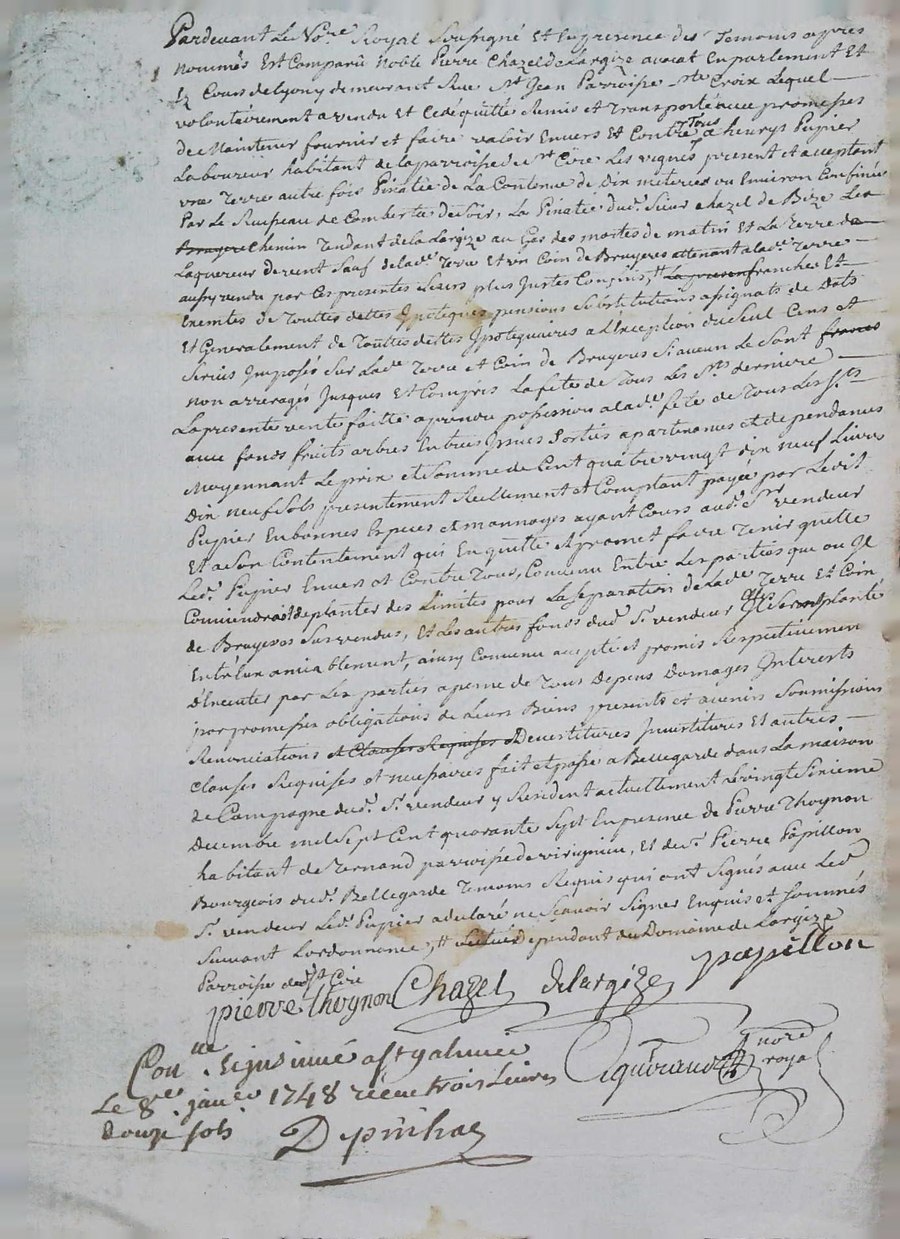 Pardevant Le No.re Royal Soussigné Et En presence des Temoins apres
nommés Est Comparû Noble Pierre Chazel de Largize avocat En parlement Et
Ez Cours de Lyon y demeurant Rue St Jean Parroisse Ste Croix Lequel
volontairement a vendu et Cedé quitté Remis et Transporté avec promesses
de Maintenir fournir et faire valoir Envers Et Contre Tous a henrys Pupier
Laboureur habitant de la parroisse de st Cire Les vignes present et acceptant
une Terre autre fois Pinatée de La Contenue de Dix meterées ou Environ Confinée
Par Le Ruisseau de Combertie de Soir, La Pinatée dud. Sieur Chazel de Bize Les
Chemin Tendant de la Largize au Gas des mortes de matin Et La Terre de
Laquereur de vent Sauf de lad.e Terre Et un Coin de Bruyeres attenant a lad.e Terre
aussy vendu par Ces presentes Leurs plus Justes Confins, franches Et
Exemtes de Touttes dettes Ypoteques pensions Substitutions assignats de Dots
Et Generalement de Touttes dettes Ypotequaires a L'exception du Seul Cens et
Servis Imposés Sur Lad.e Terre et Coin de Bruyeres Si aucun Le Sont
non arreragés Jusques Et Compris La fête de Tous Les Sts derniere
La presente vente faitte a prendre possession a lad.e fête de Tous Les Sts
avec fonds fruits arbres Entrées Issues Sorties apartenances et dependances
Moyennant Le prix et Somme de Cent quatre vingt dix neuf Livres
Dix neuf Sols presentement Reellement et Comptant payée par Ledit
Pupier En bonnes Especes et monnoyes ayant Cours aud. Sr vendeur
Et a Son Contentement qui En quitte et promet faire Tenir quitte
Led. Pupier Envers et Contre Tous, Convenu Entre Les parties que ou Il
Conviendroit de planter des Limites pour La Separation de Lad.e Terre Et Coin
de Bruyeres Sus vendus, Et Les autres fonds dud. Sr vendeur Elles Seront plantés
Entr'eux amiablement, ainsy Convenu accepté et promis Respectivement
D'Executer par Les parties a peine de Tous Depens Domages Interests
par promesses obligations de Leurs Biens presents et avenirs Soumissions
Renonciations et Clauses Requises et Devestitures Investitures Et autres
Clauses Requises et necessaires fait et passé a Bellegarde dans La maison
de Campagne dud. Sr vendeur y Resident actuellement Le vingt Sixieme
Decembre mil Sept Cent quarante Sept En presence de Pierre Thoynon
habitant de Ternand parroisse de virignieu, Et de Sr Pierre Papillon
Bourgeois dud. Bellegarde Temoins Requis qui ont Signés avec Led.
Sr vendeur Led. Pupier a declaré ne Scavoir Signer Enquis et Sommés
Suivant Lordonnance, dependant du Domaine de Largize
Parroisse dud. St Cire
pierre Thoynon Chazel delargize papillon
no.re royal
Con.lle Et insinué a St galmier
Le 8.e janvier 1748 receu trois Livres
douze sols
Depinhac